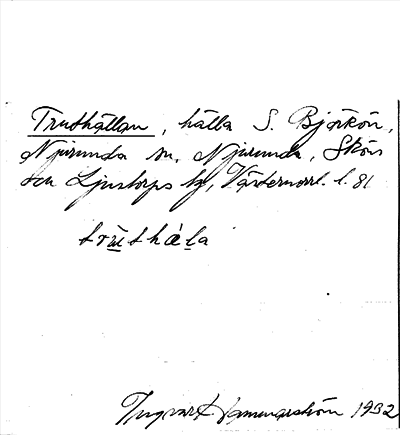 Truthällan, hälla S. Björkön,
Njurunda sn, Njurunda, Sköns
och Ljustorps tg, Västernorrl. l. 81
trùthä́la
Ingvar Hammarström 1932